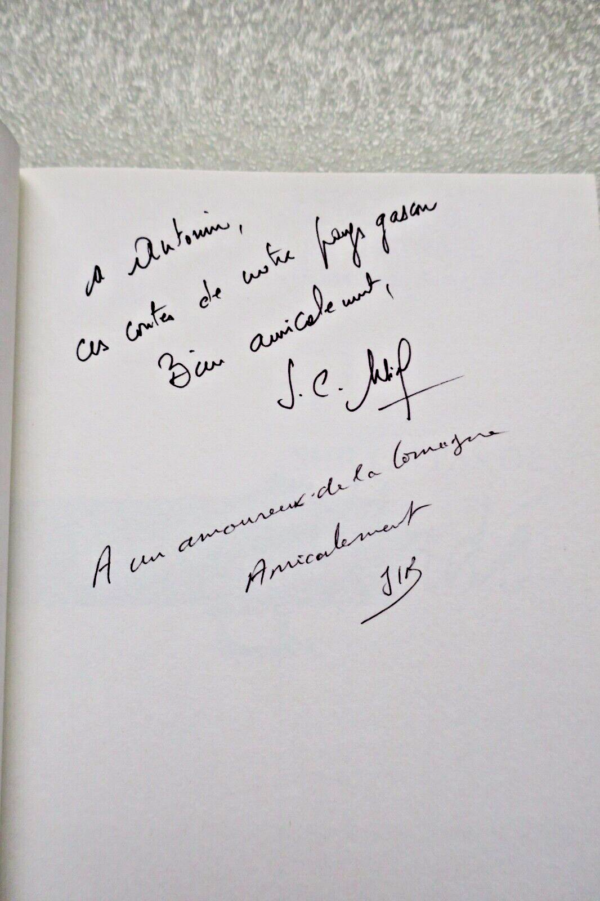 à Antonin,
ces contes de notre pays gascon
Bien amicalement,
J. C.
A un amoureux de la Lomagne
Amicalement